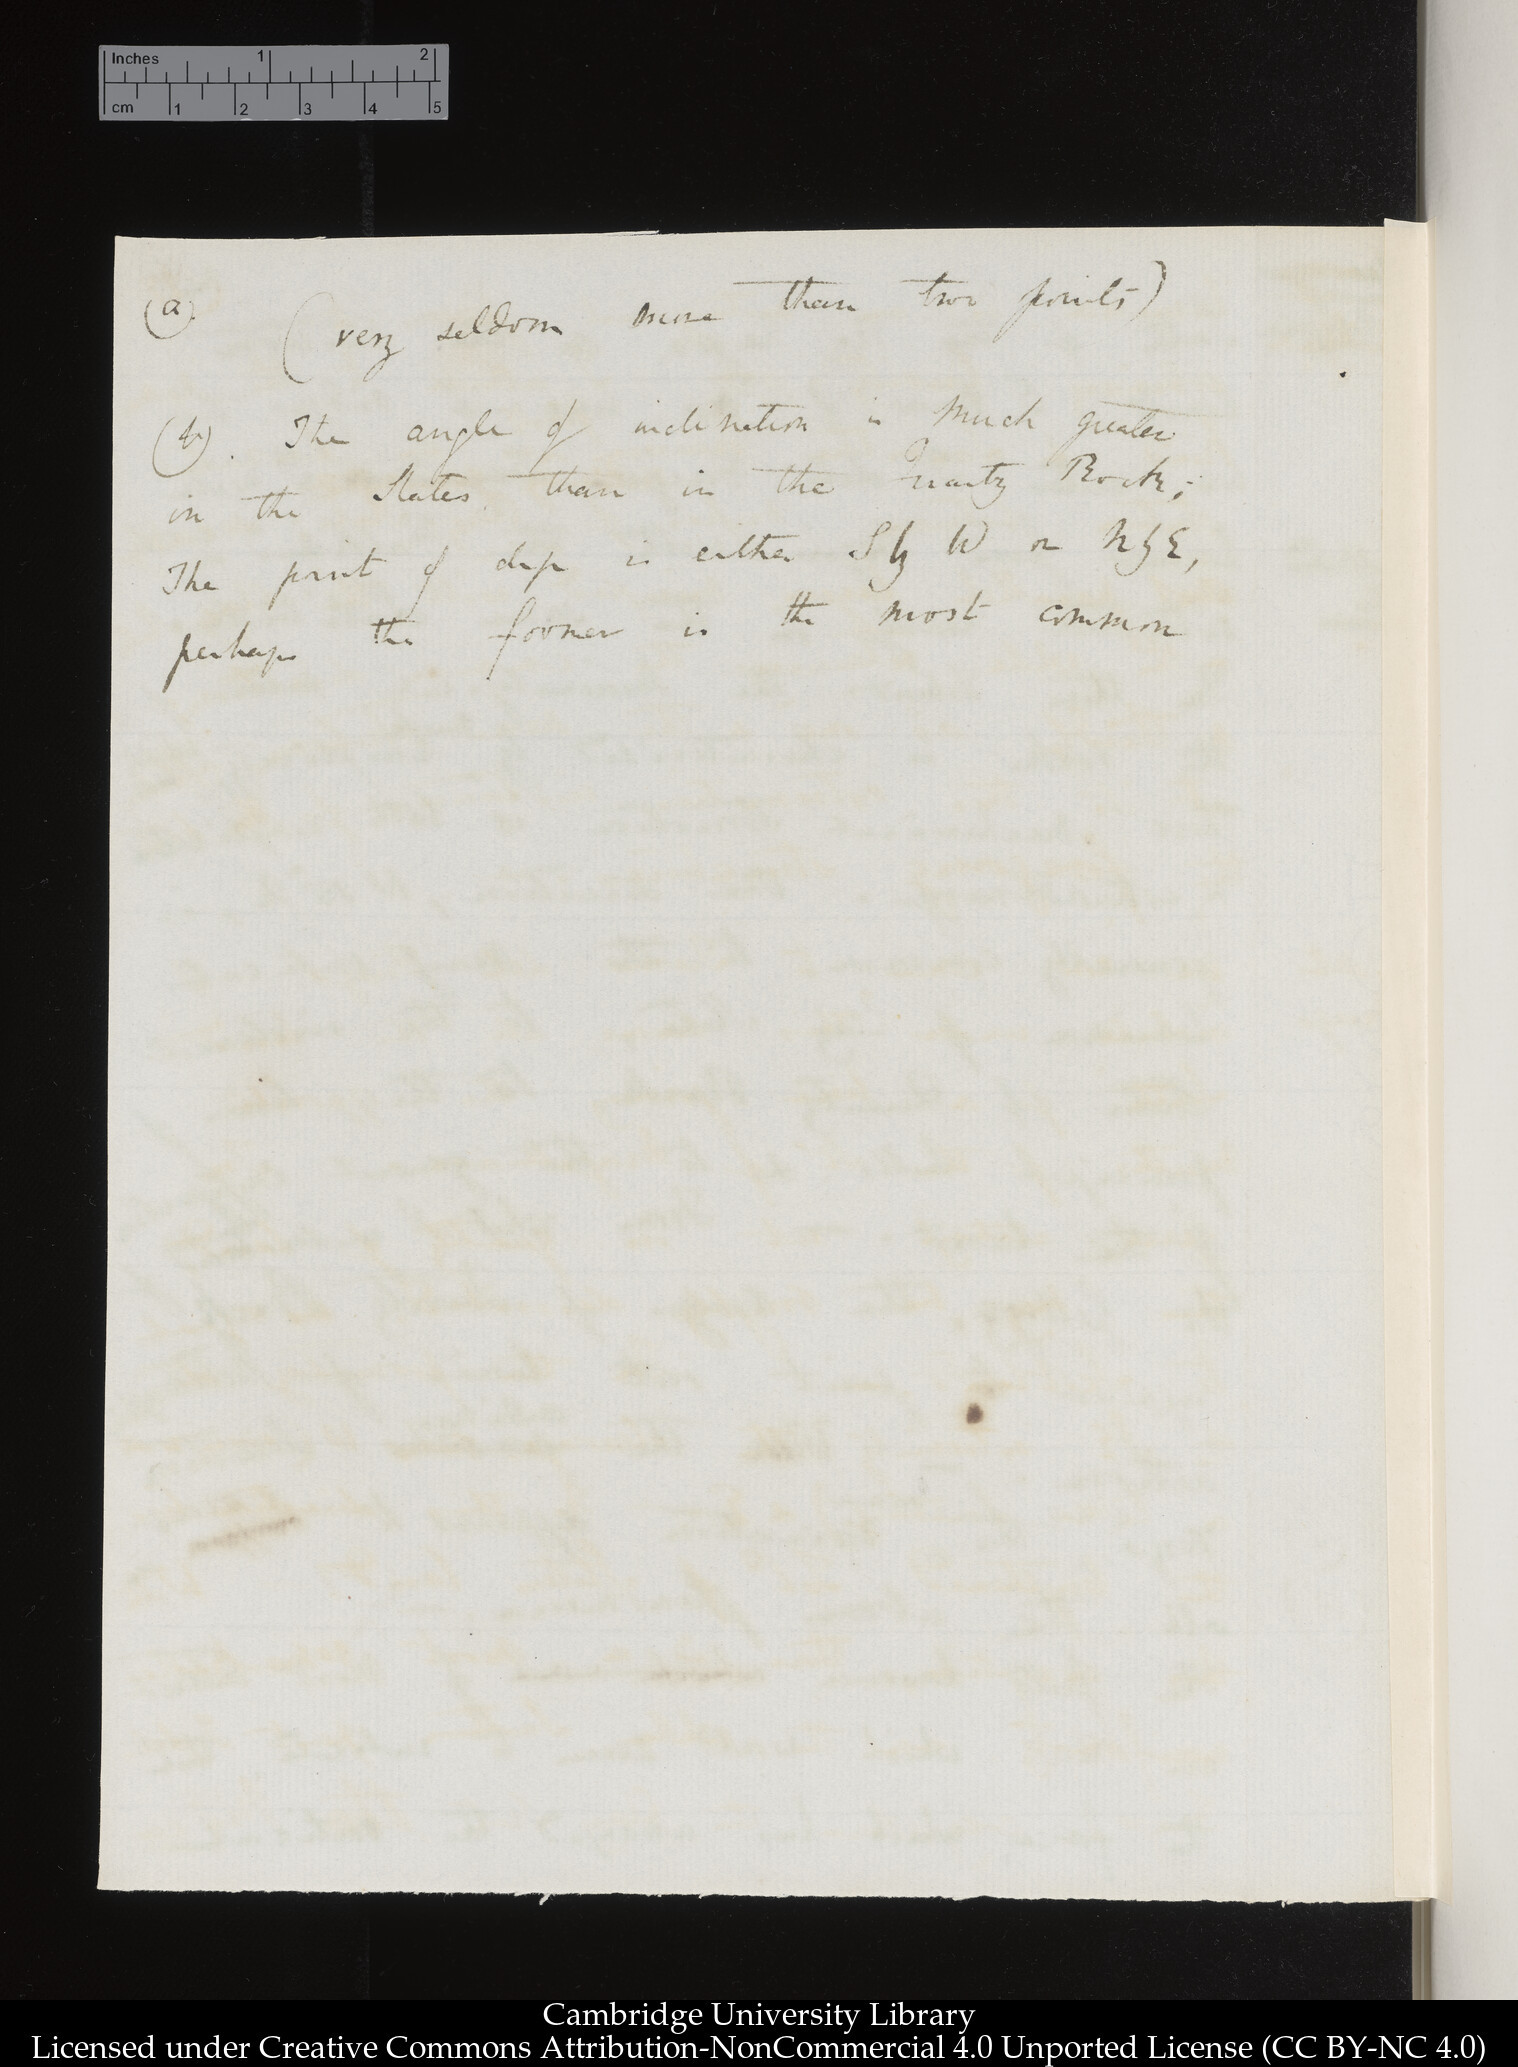 Inches 1 2
cm 1 2 3 4 5
(a) (very seldom more than two points)
(b). The angle of inclination is much greater
in the Slates, than in the Quartz Rock;
The point of dip is either S by W or N by E,
perhaps the former is the most common
Cambridge University Library
Licensed under Creative Commons Attribution-NonCommercial 4.0 Unported License (CC BY-NC 4.0)